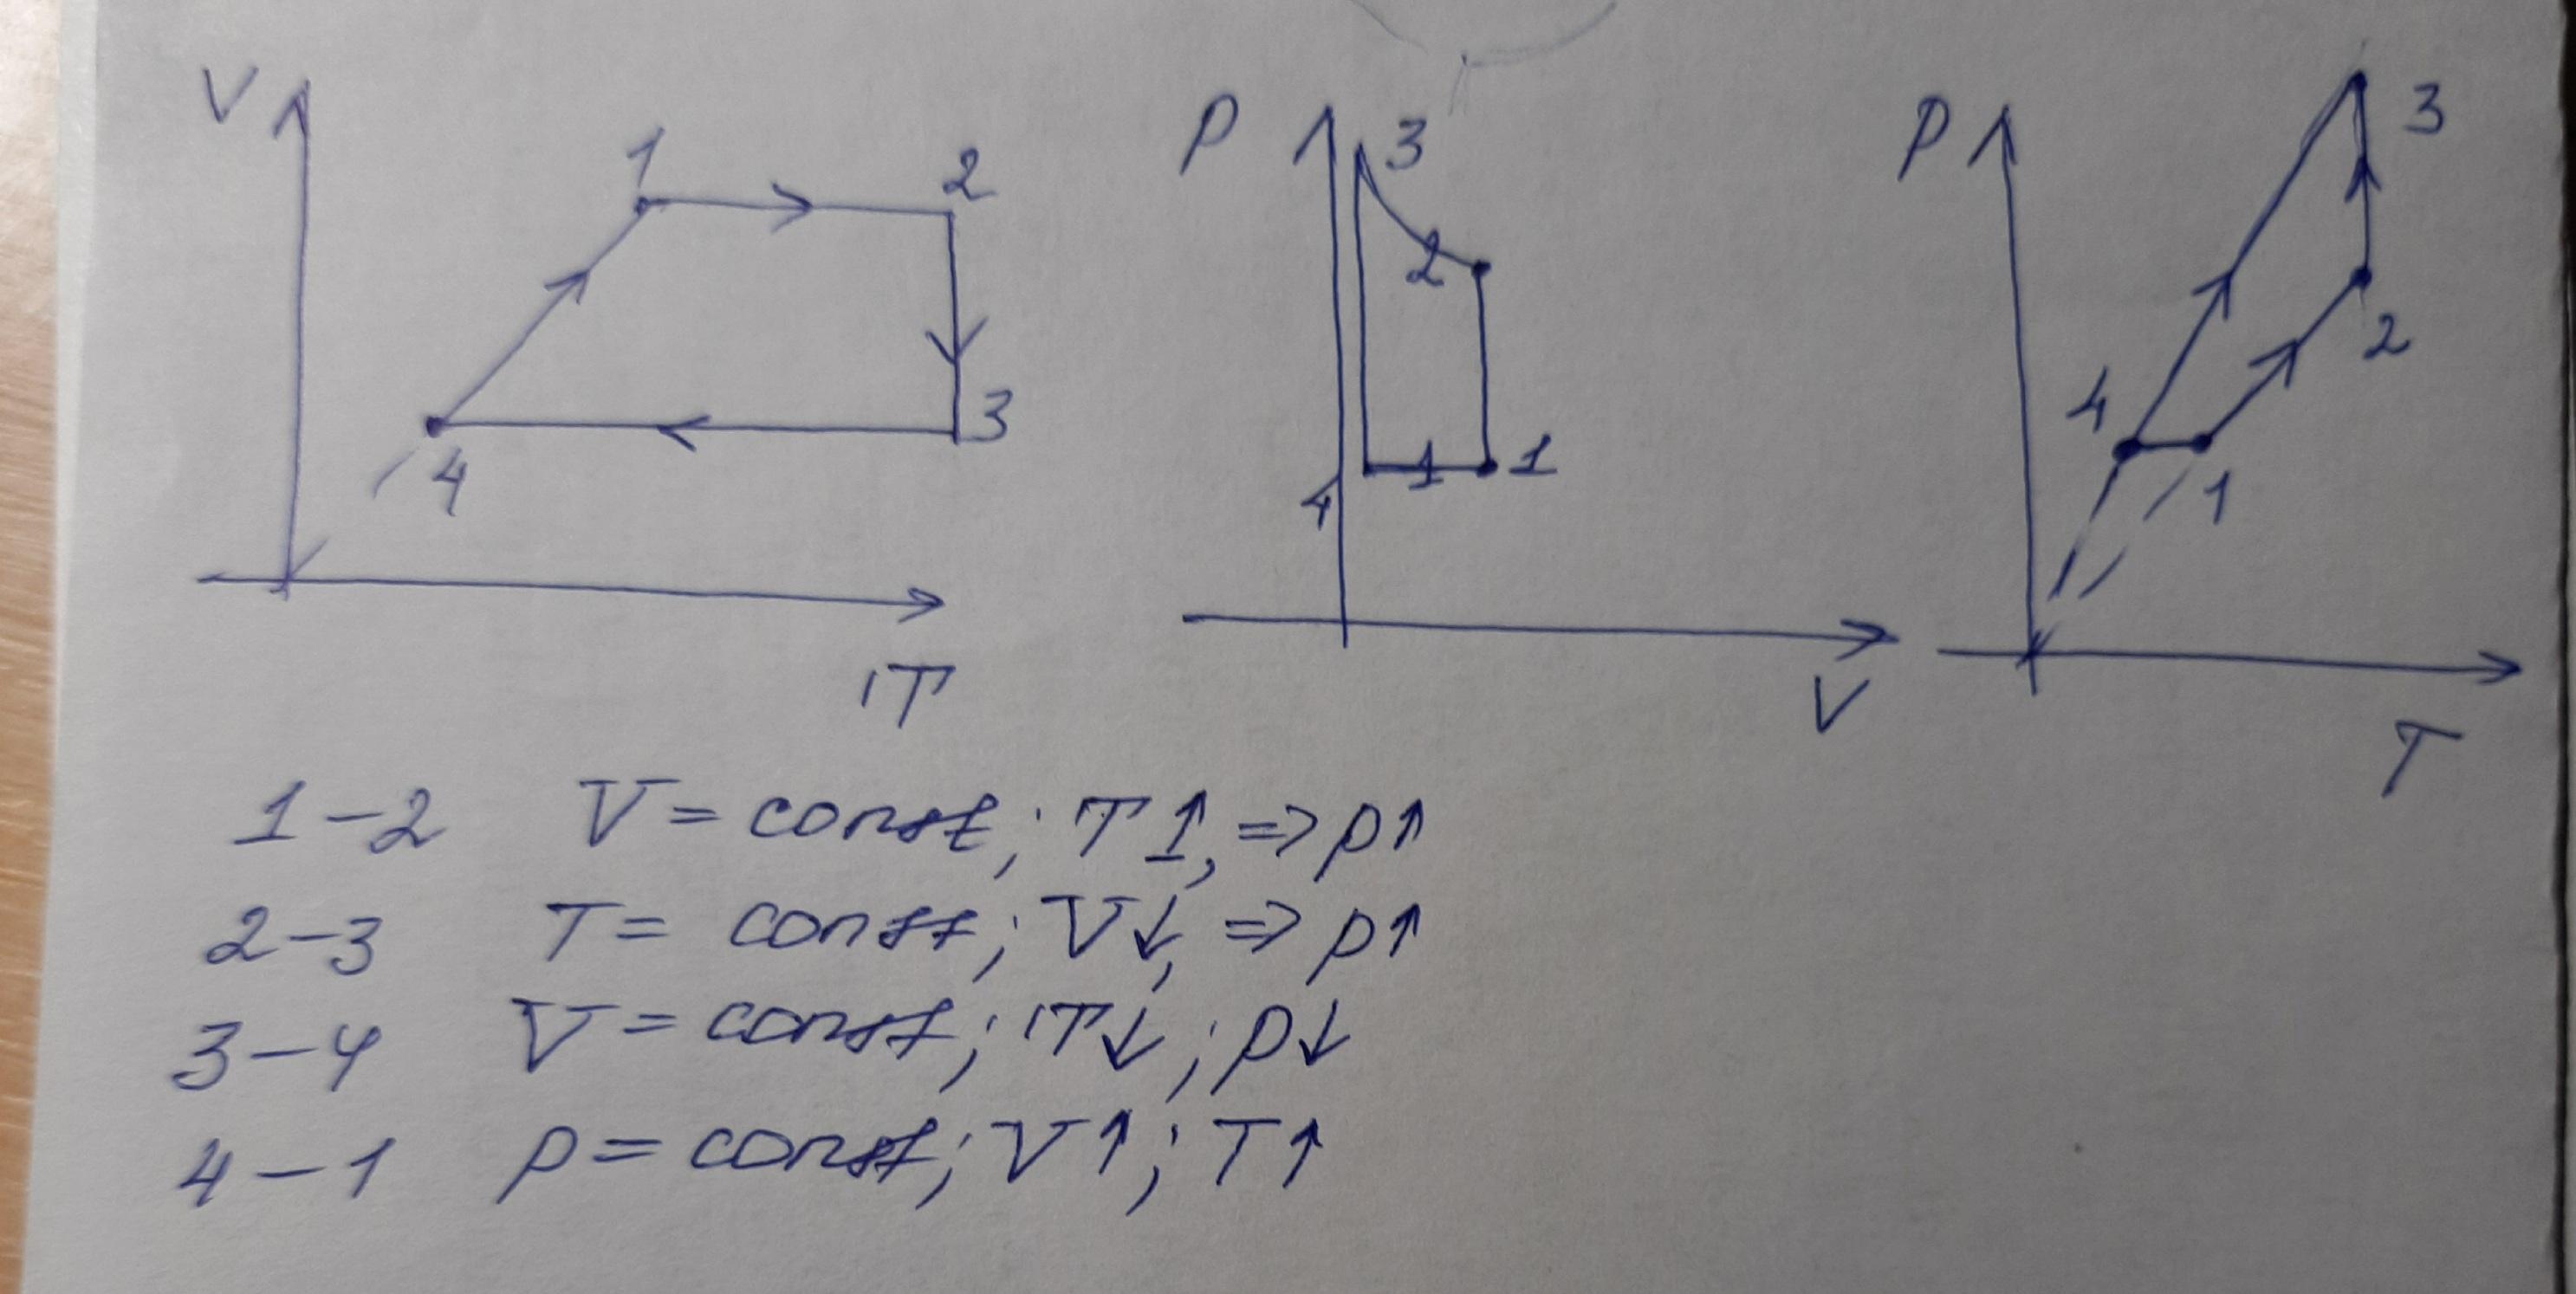 V
1
2
3
4
T
P
3
2
1
1
4
V
P
3
2
4
1
T
1-2 V = const; T↑, => p↑
2-3 T = const; V↓, => p↑
3-4 V = const; T↓; p↓
4-1 p = const; V↑; T↑